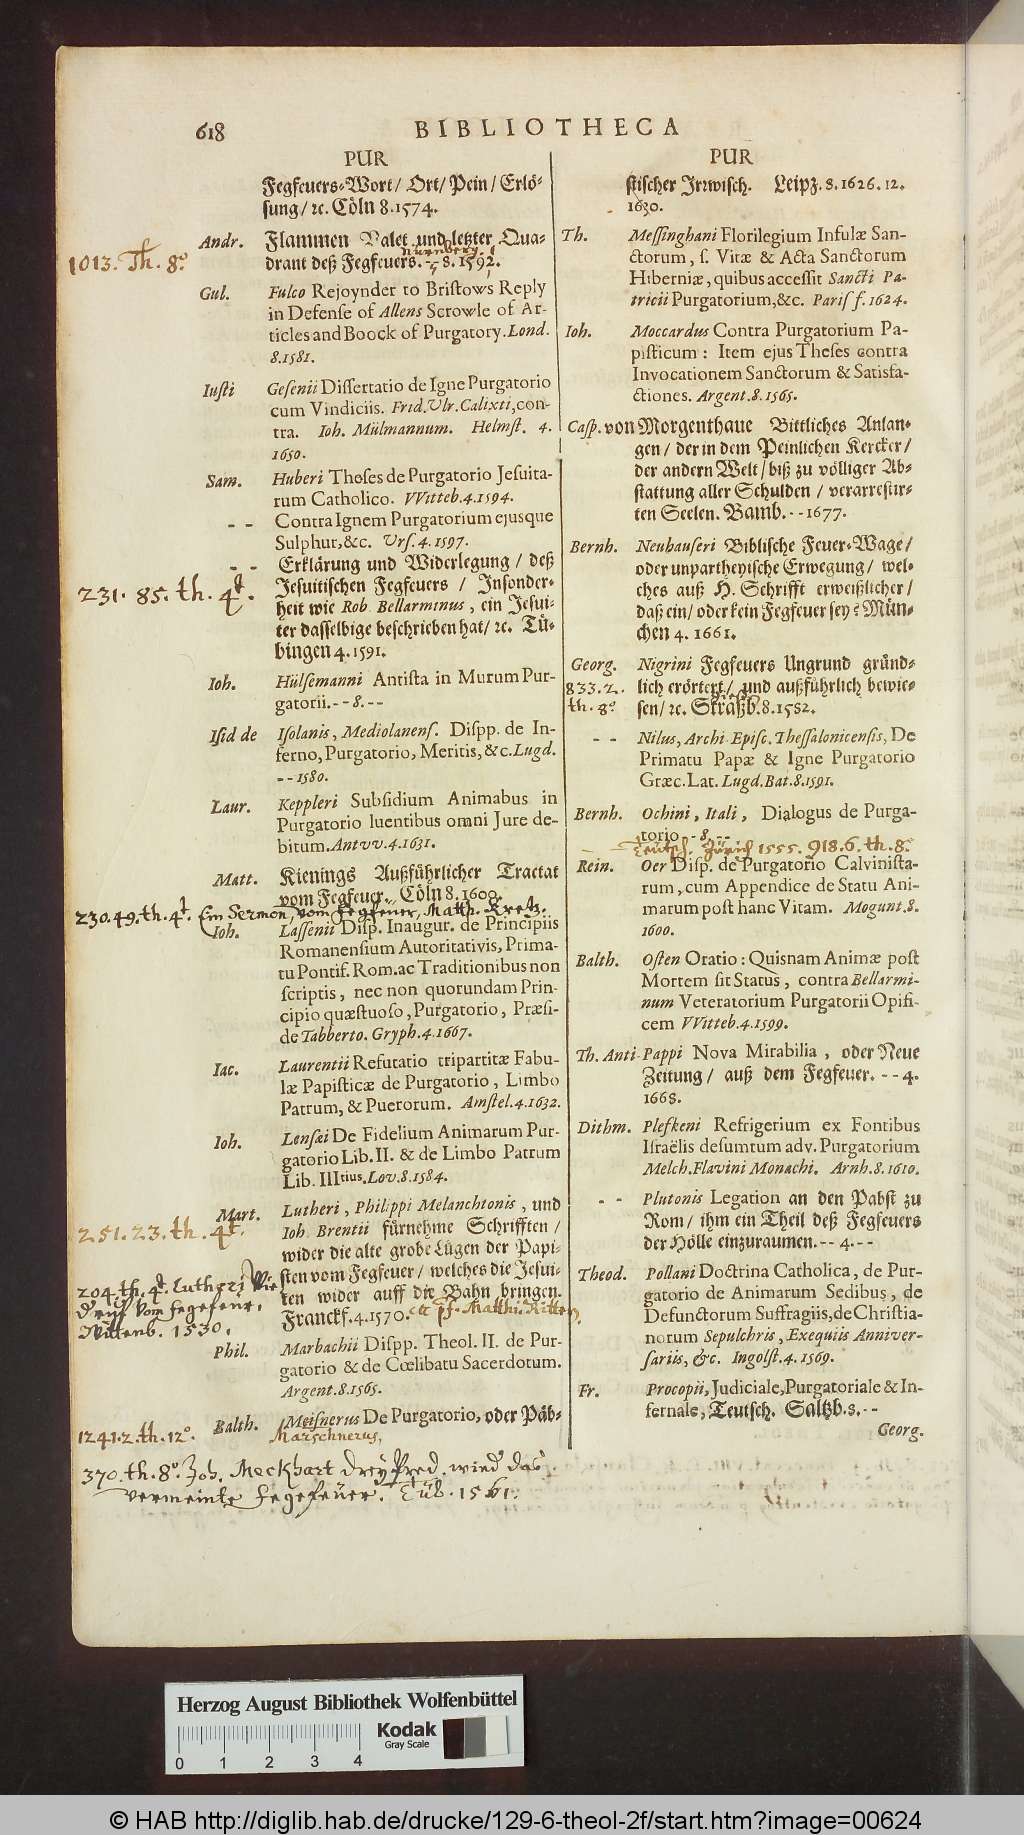 618 BIBLIOTHECA
PUR
Fegfeuers-Wort/ Ort/ Pein/ Erlö-
sung/ ꝛc. Cöln 8. 1574.
1013. Th. 8º
Andr. Flammen Valet und letzter Qua-
drant deß Fegfeuers. - - 8. 1592.
Nürenberg.
Gul. Fulco Rejoynder to Bristows Reply
in Defense of Allens Scrowle of Ar-
ticles and Boock of Purgatory. Lond.
8. 1581.
Iusti Gesenii Dissertatio de Igne Purgatorio
cum Vindiciis. Frid. Ulr. Calixti, con-
tra. Ioh. Mülmannum. Helmst. 4.
1650.
Sam. Huberi Theses de Purgatorio Jesuita-
rum Catholico. VVitteb. 4. 1594.
- - Contra Ignem Purgatorium ejusque
Sulphur, &c. Urs. 4. 1597.
- - Erklärung und Widerlegung / deß
231. 85. th. 4t.
Jesuitischen Fegfeuers / Insonder-
heit wie Rob. Bellarminus, ein Jesui-
ter dasselbige beschrieben hat/ ꝛc. Tü-
bingen 4. 1591.
Ioh. Hülsemanni Antista in Murum Pur-
gatorii. - - 8. - -
Isid de Isolanis, Mediolanens. Dispp. de In-
ferno, Purgatorio, Meritis, &c. Lugd.
- - 1580.
Laur. Keppleri Subsidium Animabus in
Purgatorio luentibus omni Jure de-
bitum. Antvv. 4. 1631.
Matt. Kienings Außführlicher Tractat
vom Fegfeur. Cöln 8. 1600.
230. 49. th. 4t. Ein Sermon, vom Fegfeuer, Matth. Kretz.
Ioh. Lassenii Disp. Inaugur. de Principiis
Romanensium Autoritativis, Prima-
tu Pontif. Rom. ac Traditionibus non
scriptis, nec non quorundam Prin-
cipio quæstuoso, Purgatorio, Præsi-
de Tabberto. Gryph. 4. 1667.
Iac. Laurentii Refutatio tripartitæ Fabu-
læ Papisticæ de Purgatorio, Limbo
Patrum, & Puerorum. Amstel. 4. 1632.
Ioh. Lensæi De Fidelium Animarum Pur-
gatorio Lib. II. & de Limbo Patrum
Lib. IIItius. Lov. 8. 1584.
Mart. Lutheri, Philippi Melanchtonis, und
251. 23. th. 4t.
Ioh. Brentii fürnehme Schrifften /
wider die alte grobe Lügen der Papi-
sten vom Fegfeuer / welches die Jesui-
ten wider auff die Bahn bringen.
Franckf. 4. 1570. Matthi. Ritter.
204. th. 4t. Lutheri Wie-
druf vom fegefeur.
Wittenb. 1530.
Phil. Marbachii Dispp. Theol. II. de Pur-
gatorio & de Cœlibatu Sacerdotum.
Argent. 8. 1565.
1241. 2. th. 12º.
Balth. Meisnerus De Purgatorio, oder Päb-
Marschnerus,
370. th. 8º. Joh. Meckhart drey Pred. wied das
vermeinte fegefeüer. Tüb. 1561.
PUR
stischer Irrwisch. Leipz. 8. 1626. 12.
1630.
Th. Messinghani Florilegium Insulæ San-
ctorum, s. Vitæ & Acta Sanctorum
Hiberniæ, quibus accessit Sancti Pa-
tricii Purgatorium, &c. Paris f. 1624.
Ioh. Moccardus Contra Purgatorium Pa-
pisticum: Item ejus Theses contra
Invocationem Sanctorum & Satisfa-
ctiones. Argent. 8. 1565.
Casp. von Morgenthaue Bittliches Anlan-
gen / der in dem Peinlichen Kercker /
der andern Welt / biß zu völliger Ab-
stattung aller Schulden / verarrestir-
ten Seelen. Bamb. - - 1677.
Bernh. Neuhauseri Biblische Feuer-Wage /
oder unpartheyische Erwegung / wel-
ches auß H. Schrifft erweißlicher /
daß ein/ oder kein Fegfeuer sey? Mün-
chen 4. 1661.
Georg. Nigrini Fegfeuers Ungrund gründ-
833. 2. lich erörtert / und außführlich bewie-
th. 8º sen/ ꝛc. Straßb. 8. 1582.
- - Nilus, Archi Episc. Thessalonicensis, De
Primatu Papæ & Igne Purgatorio
Græc. Lat. Lugd. Bat. 8. 1591.
Bernh. Ochini, Itali, Dialogus de Purga-
torio - 8. - -
Teutsch. Zürich 1555. 918. 6. th. 8º
Rein. Oer Disp. de Purgatorio Calvinista-
rum, cum Appendice de Statu Ani-
marum post hanc Vitam. Mogunt. 8.
1600.
Balth. Osten Oratio: Quisnam Animæ post
Mortem sit Status, contra Bellarmi-
num Veteratorium Purgatorii Opifi-
cem VVitteb. 4. 1599.
Th. Anti-Pappi Nova Mirabilia, oder Neue
Zeitung / auß dem Fegfeuer. - - 4.
1668.
Dithm. Plefkeni Refrigerium ex Fontibus
Israëlis desumtum adv. Purgatorium
Melch. Flavini Monachi. Arnh. 8. 1610.
- - Plutonis Legation an den Pabst zu
Rom / ihm ein Theil deß Fegfeuers
der Hölle einzuraumen. - - 4. - -
Theod. Pollani Doctrina Catholica, de Pur-
gatorio de Animarum Sedibus, de
Defunctorum Suffragiis, de Christia-
norum Sepulchris, Exequiis Anniver-
sariis, &c. Ingolst. 4. 1569.
Fr. Procopii, Judiciale, Purgatoriale & In-
fernale, Teutsch. Saltzb. 8. - -
Georg.
Herzog August Bibliothek Wolfenbüttel
Kodak
Gray Scale
0 1 2 3 4
© HAB http://diglib.hab.de/drucke/129-6-theol-2f/start.htm?image=00624